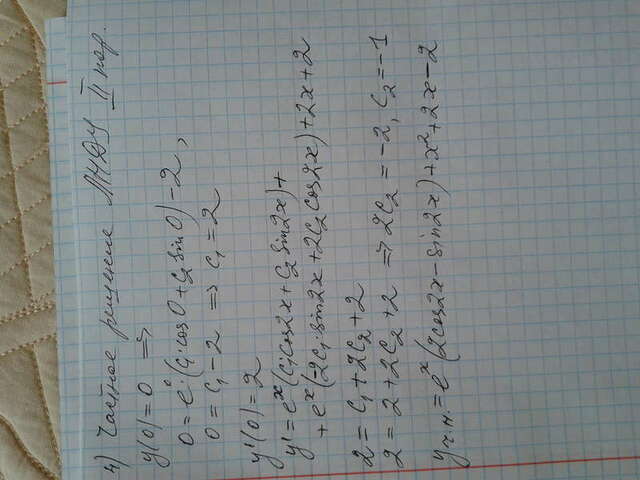 4) Частное решение ЛНДУ II пор.
y(0)=0 ⇒
0=e⁰·(C₁·cos0+C₂ sin0)-2,
0=C₁-2 ⇒ C₁=2
y'(0)=2
y'=eˣ(C₁cos2x+C₂ sin2x)+
+eˣ(2C₁·sin2x+2C₂cos2x)+2x+2
2=C₁+2C₂+2
2=2+2C₂+2 ⇒ 2C₂=-2, C₂=-1
yч.н.=eˣ(2cos2x-sin2x)+x²+2x-2